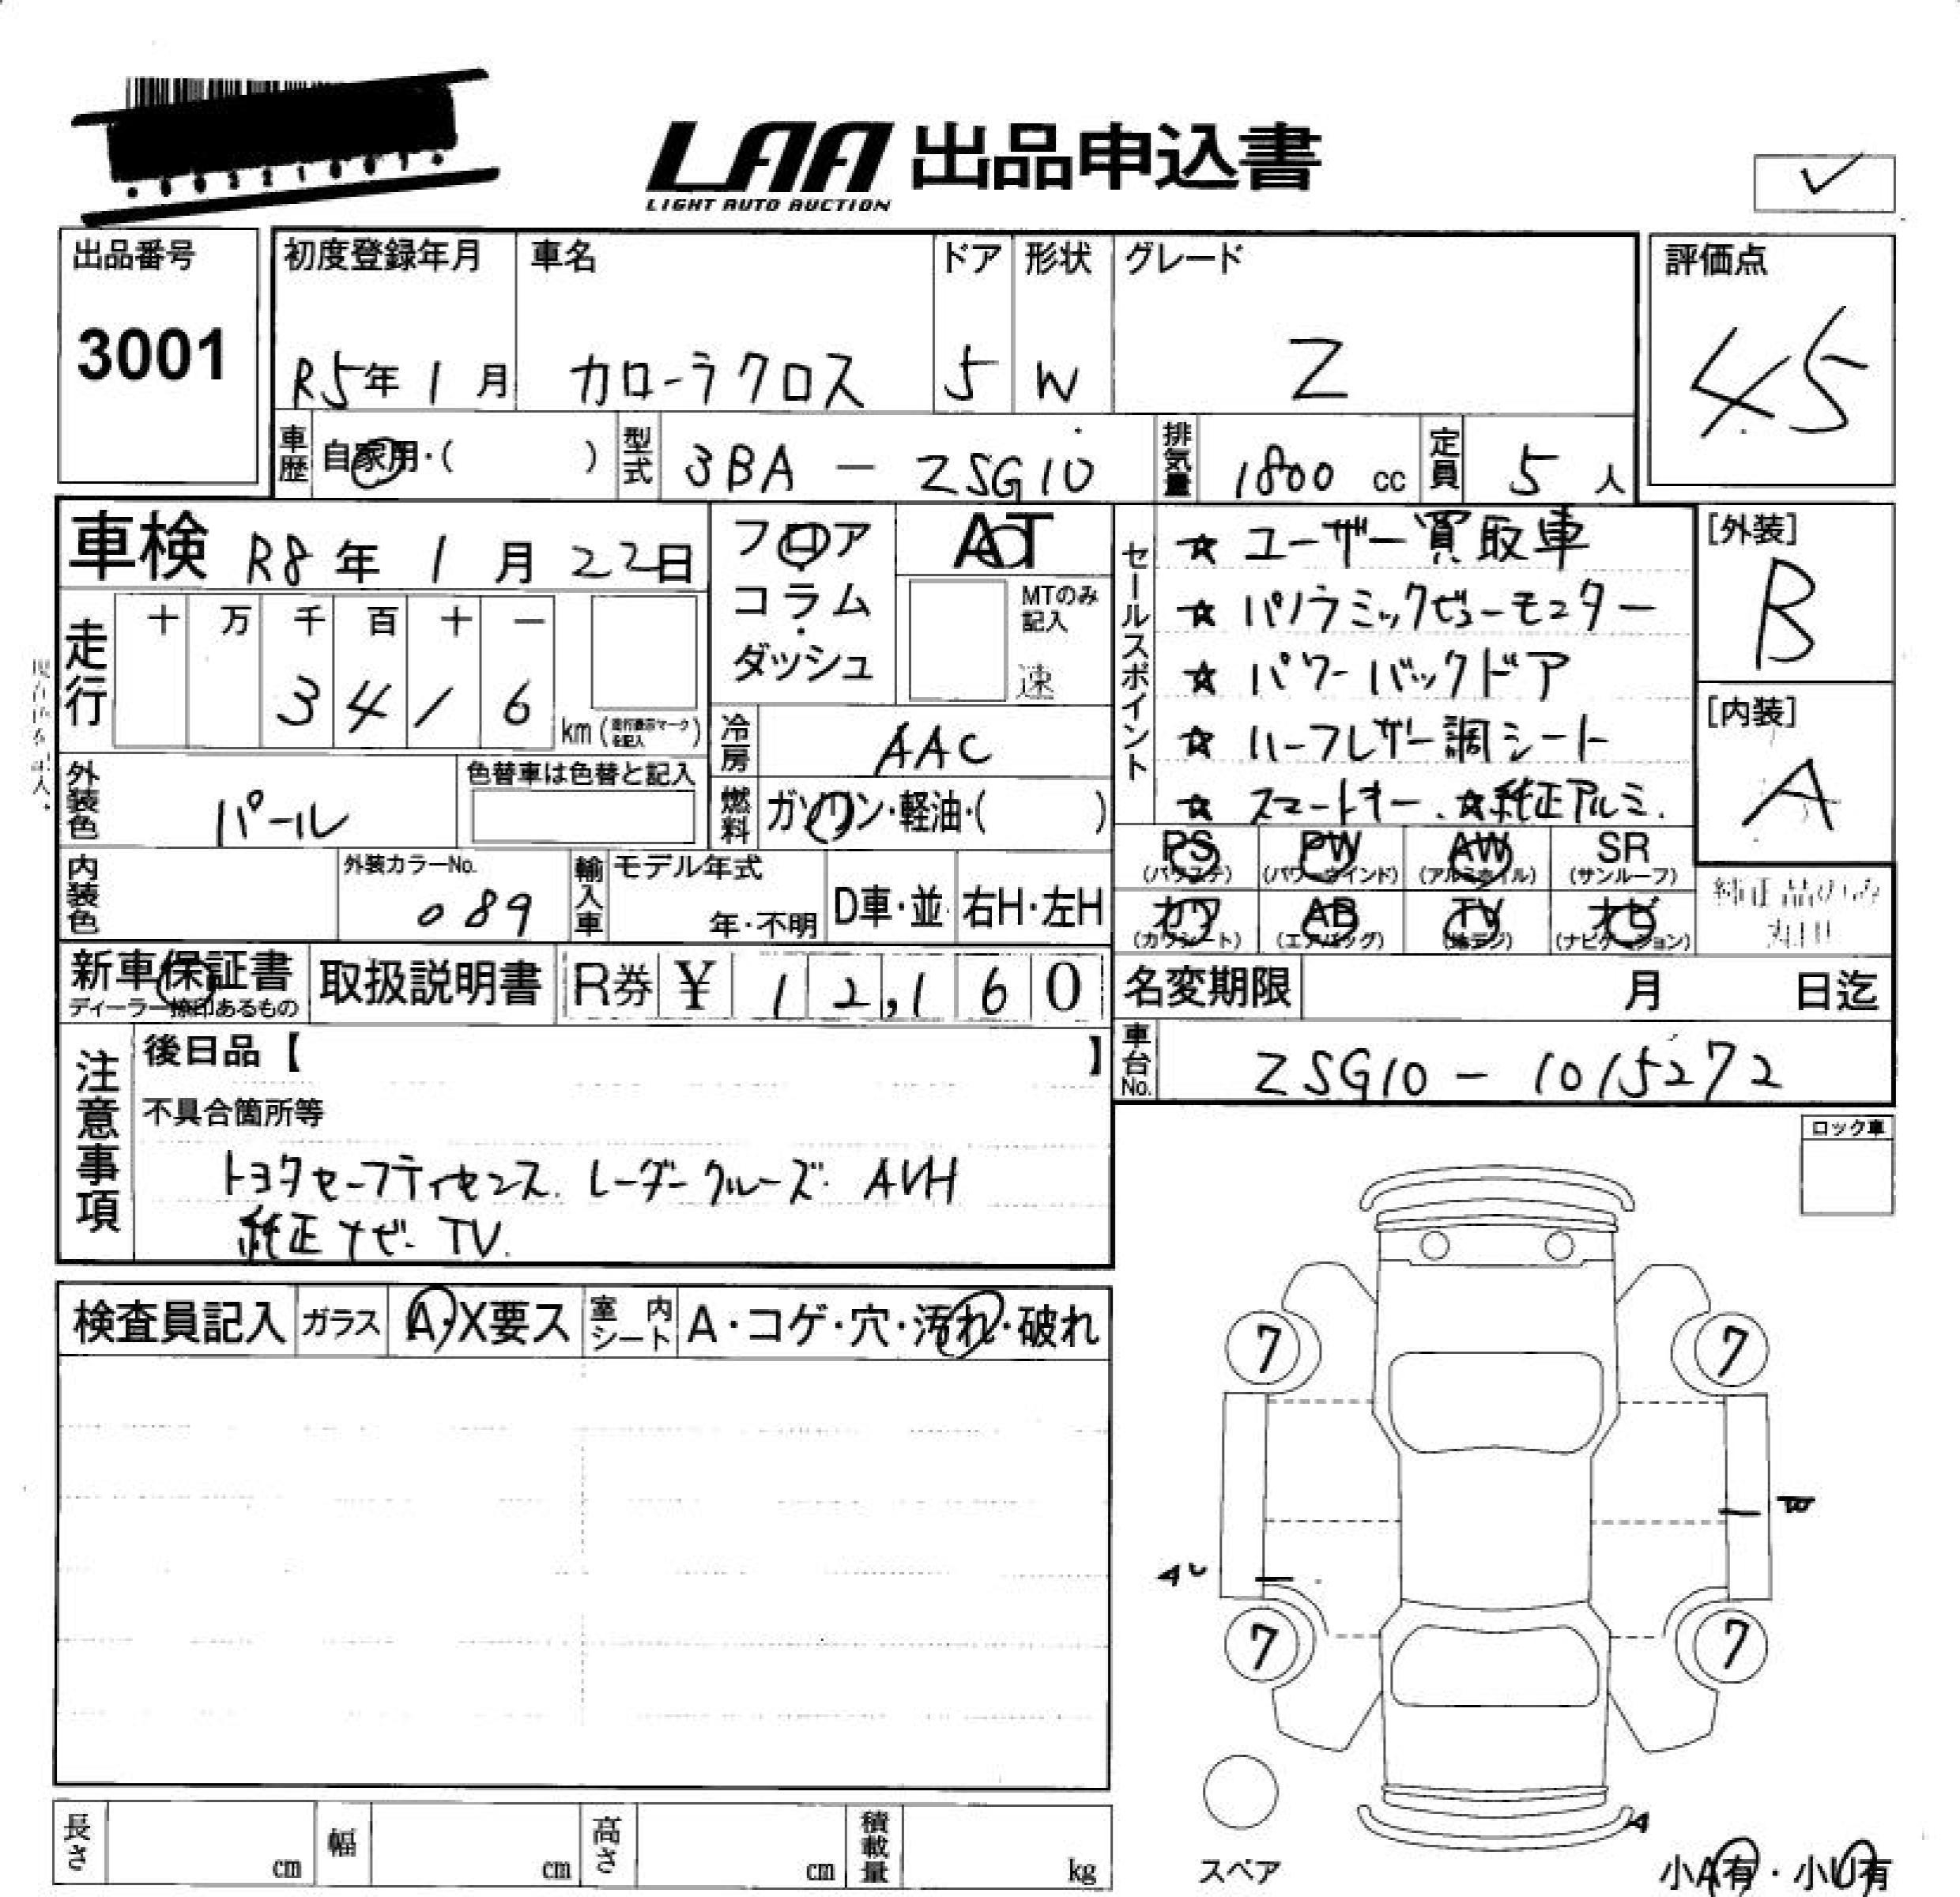 LAA 出品申込書
LIGHT AUTO AUCTION
出品番号 3001
初度登録年月 R5年 1月
車名 カローラクロス
ドア 5
形状 W
グレード Z
評価点 4.5
車歴 自家用・( )
型式 3BA - ZSG10
排気量 1800 cc
定員 5 人
車検 R8年 1月 22日
フロア コラム・ダッシュ
AT
MTのみ記入
速
走行 十 万 千 百 十 一
3 4 1 6 km (走行表示マークを記入)
冷房 AAC
外装色 パール
色替車は色替と記入
燃料 ガソリン・軽油・( )
内装色
外装カラーNo. 089
輸入車 モデル年式 年・不明
D車・並
右H・左H
セールスポイント
☆ ユーザー買取車
☆ パノラミックビューモニター
☆ パワーバックドア
☆ ハーフレザー調シート
☆ スマートキー、☆純正アルミ.
[外装] B
[内装] A
PS (パワステ)
PW (パワーウインド)
AW (アルミホイル)
SR (サンルーフ)
カワ (カワシート)
AB (エアバッグ)
TV (地デジ)
ナビ (ナビゲーション)
純正品のみ
新車保証書 ディーラー捺印あるもの
取扱説明書
R券 ¥ 12,160
名変期限 月 日迄
車台No. ZSG10 - 1015272
注意事項
後日品【 】
不具合箇所等
トヨタセーフティセンス. レーダークルーズ. AVH
純正ナビ-TV.
ロック車
検査員記入
ガラス A・X要ス
室内シート A・コゲ・穴・汚れ・破れ
7 7
A
7 7
A
スペア
小A有・小U有
長さ cm
幅 cm
高さ cm
積載量 kg